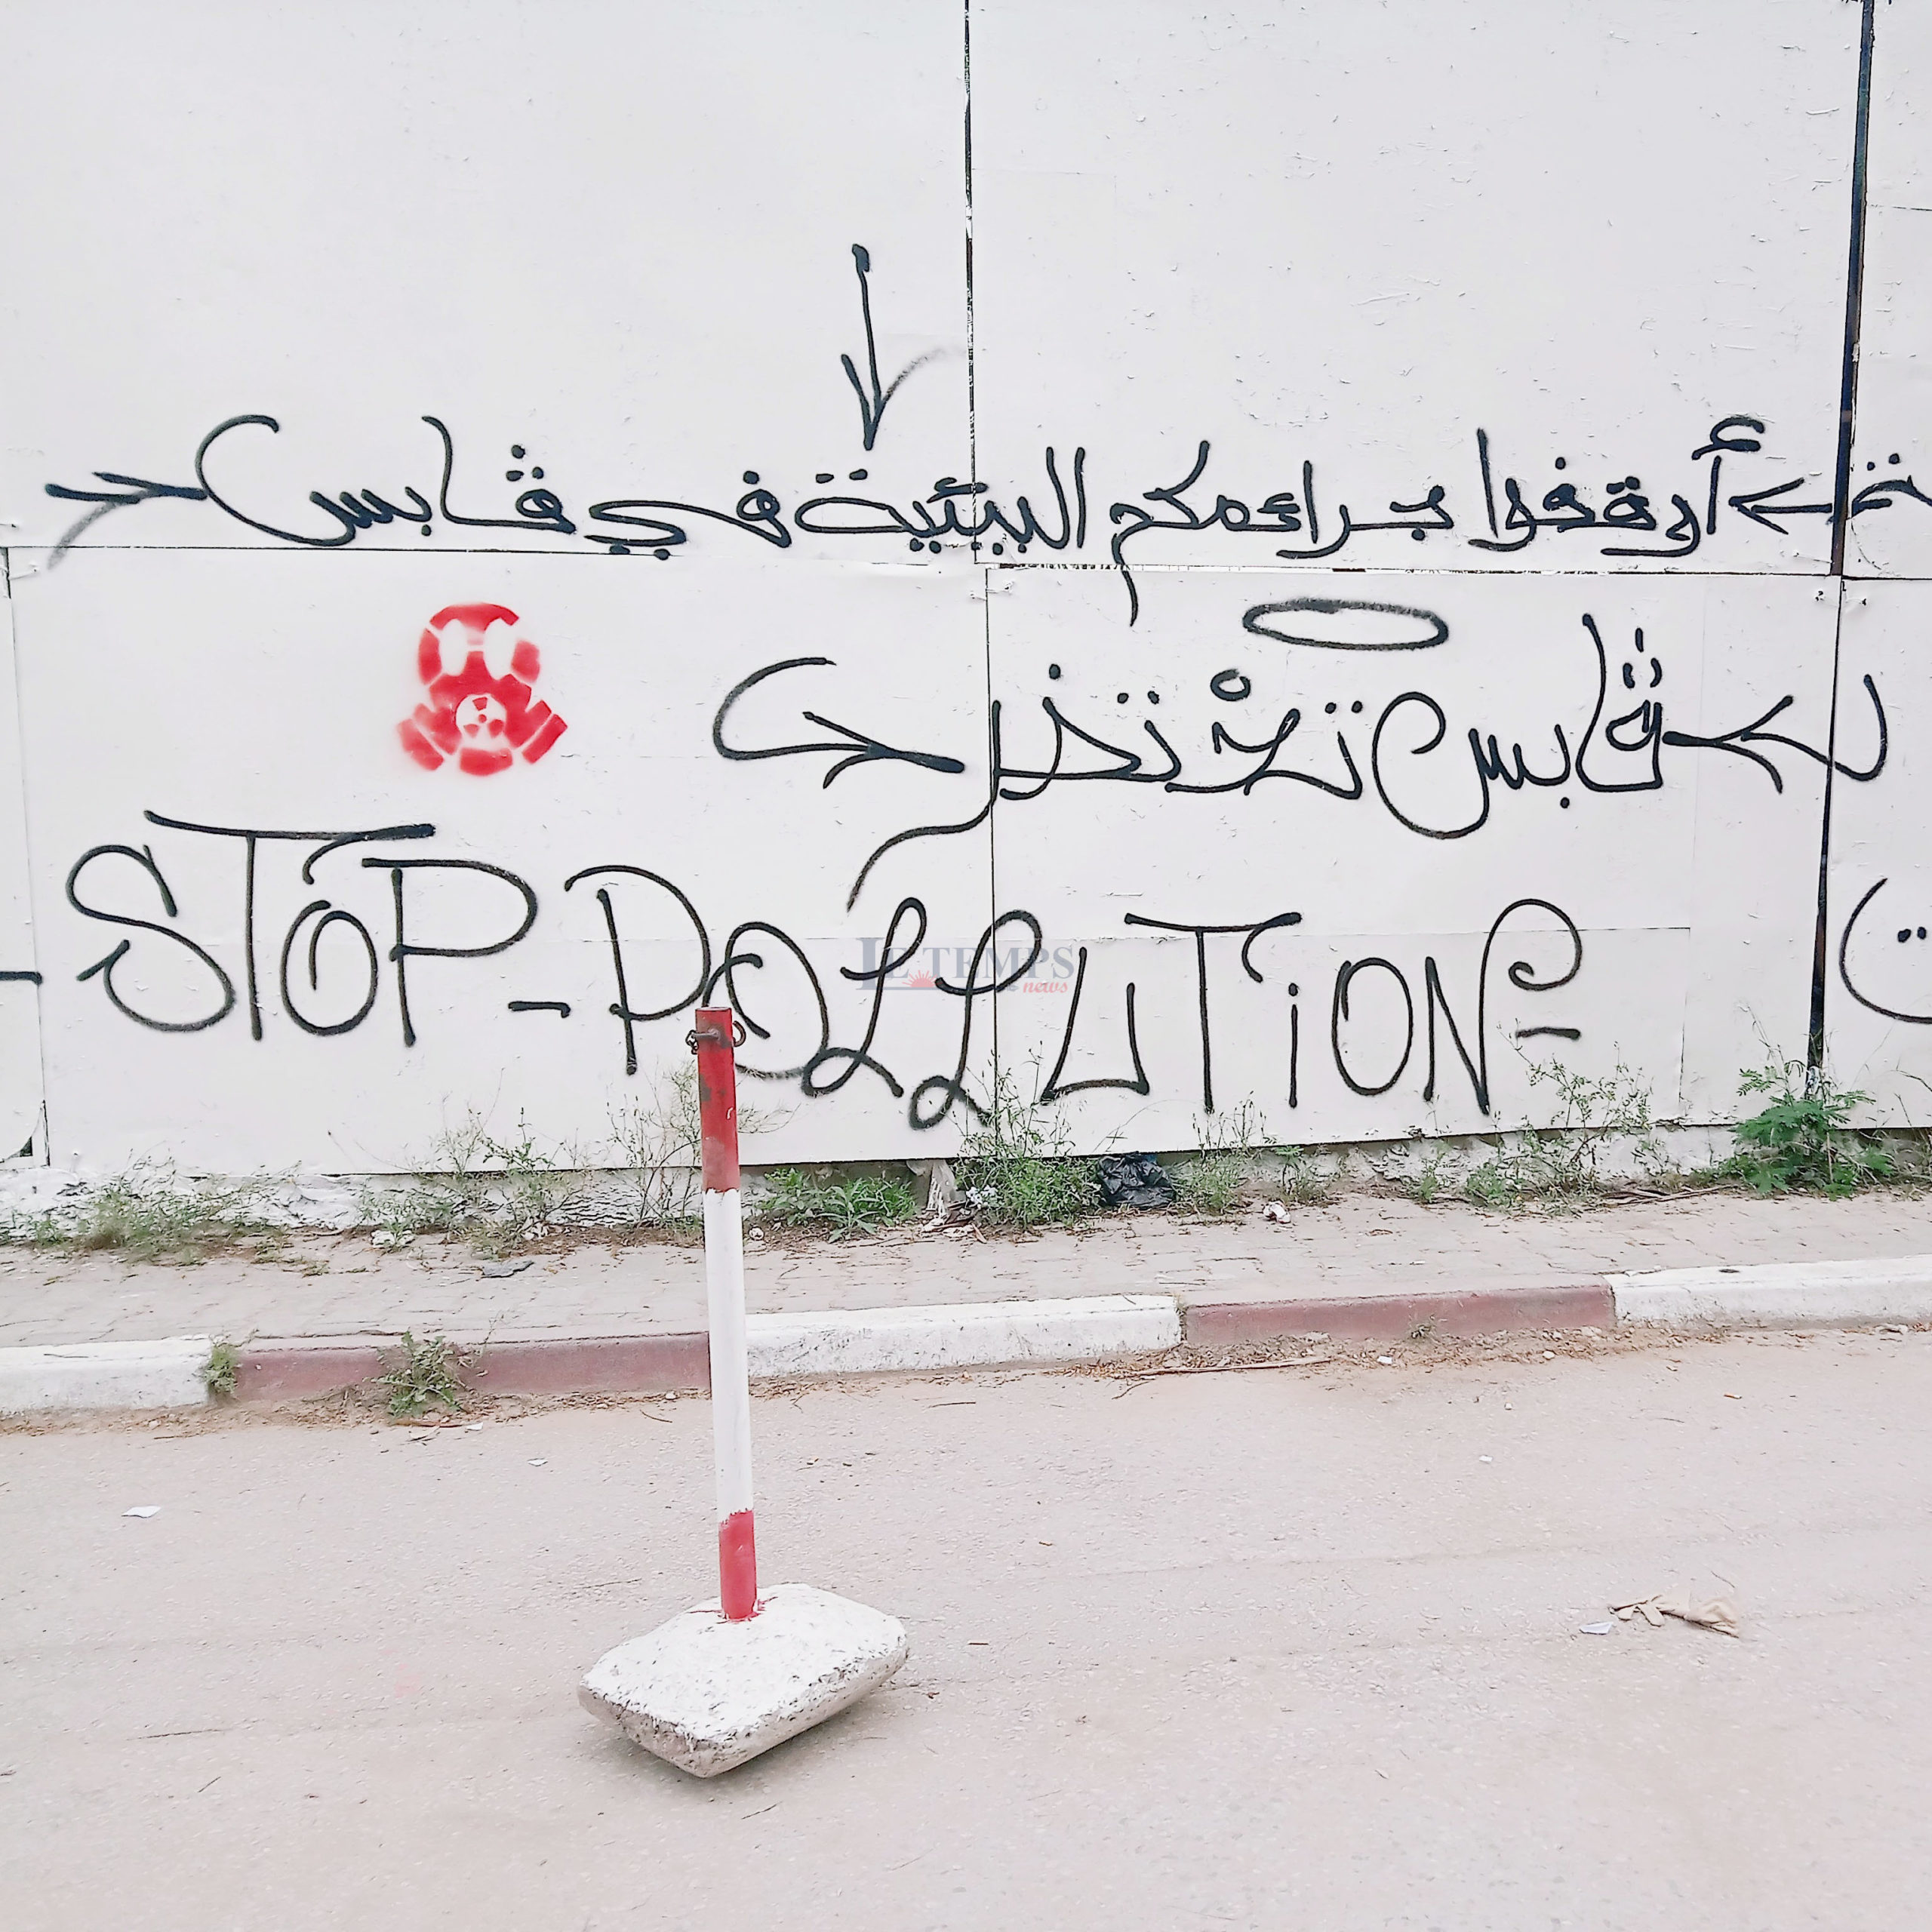 أوقفوا جرائمكم البيئية في ڨابس
ڨابس تختنق
STOP-POLLUTION
LE TEMPS
news